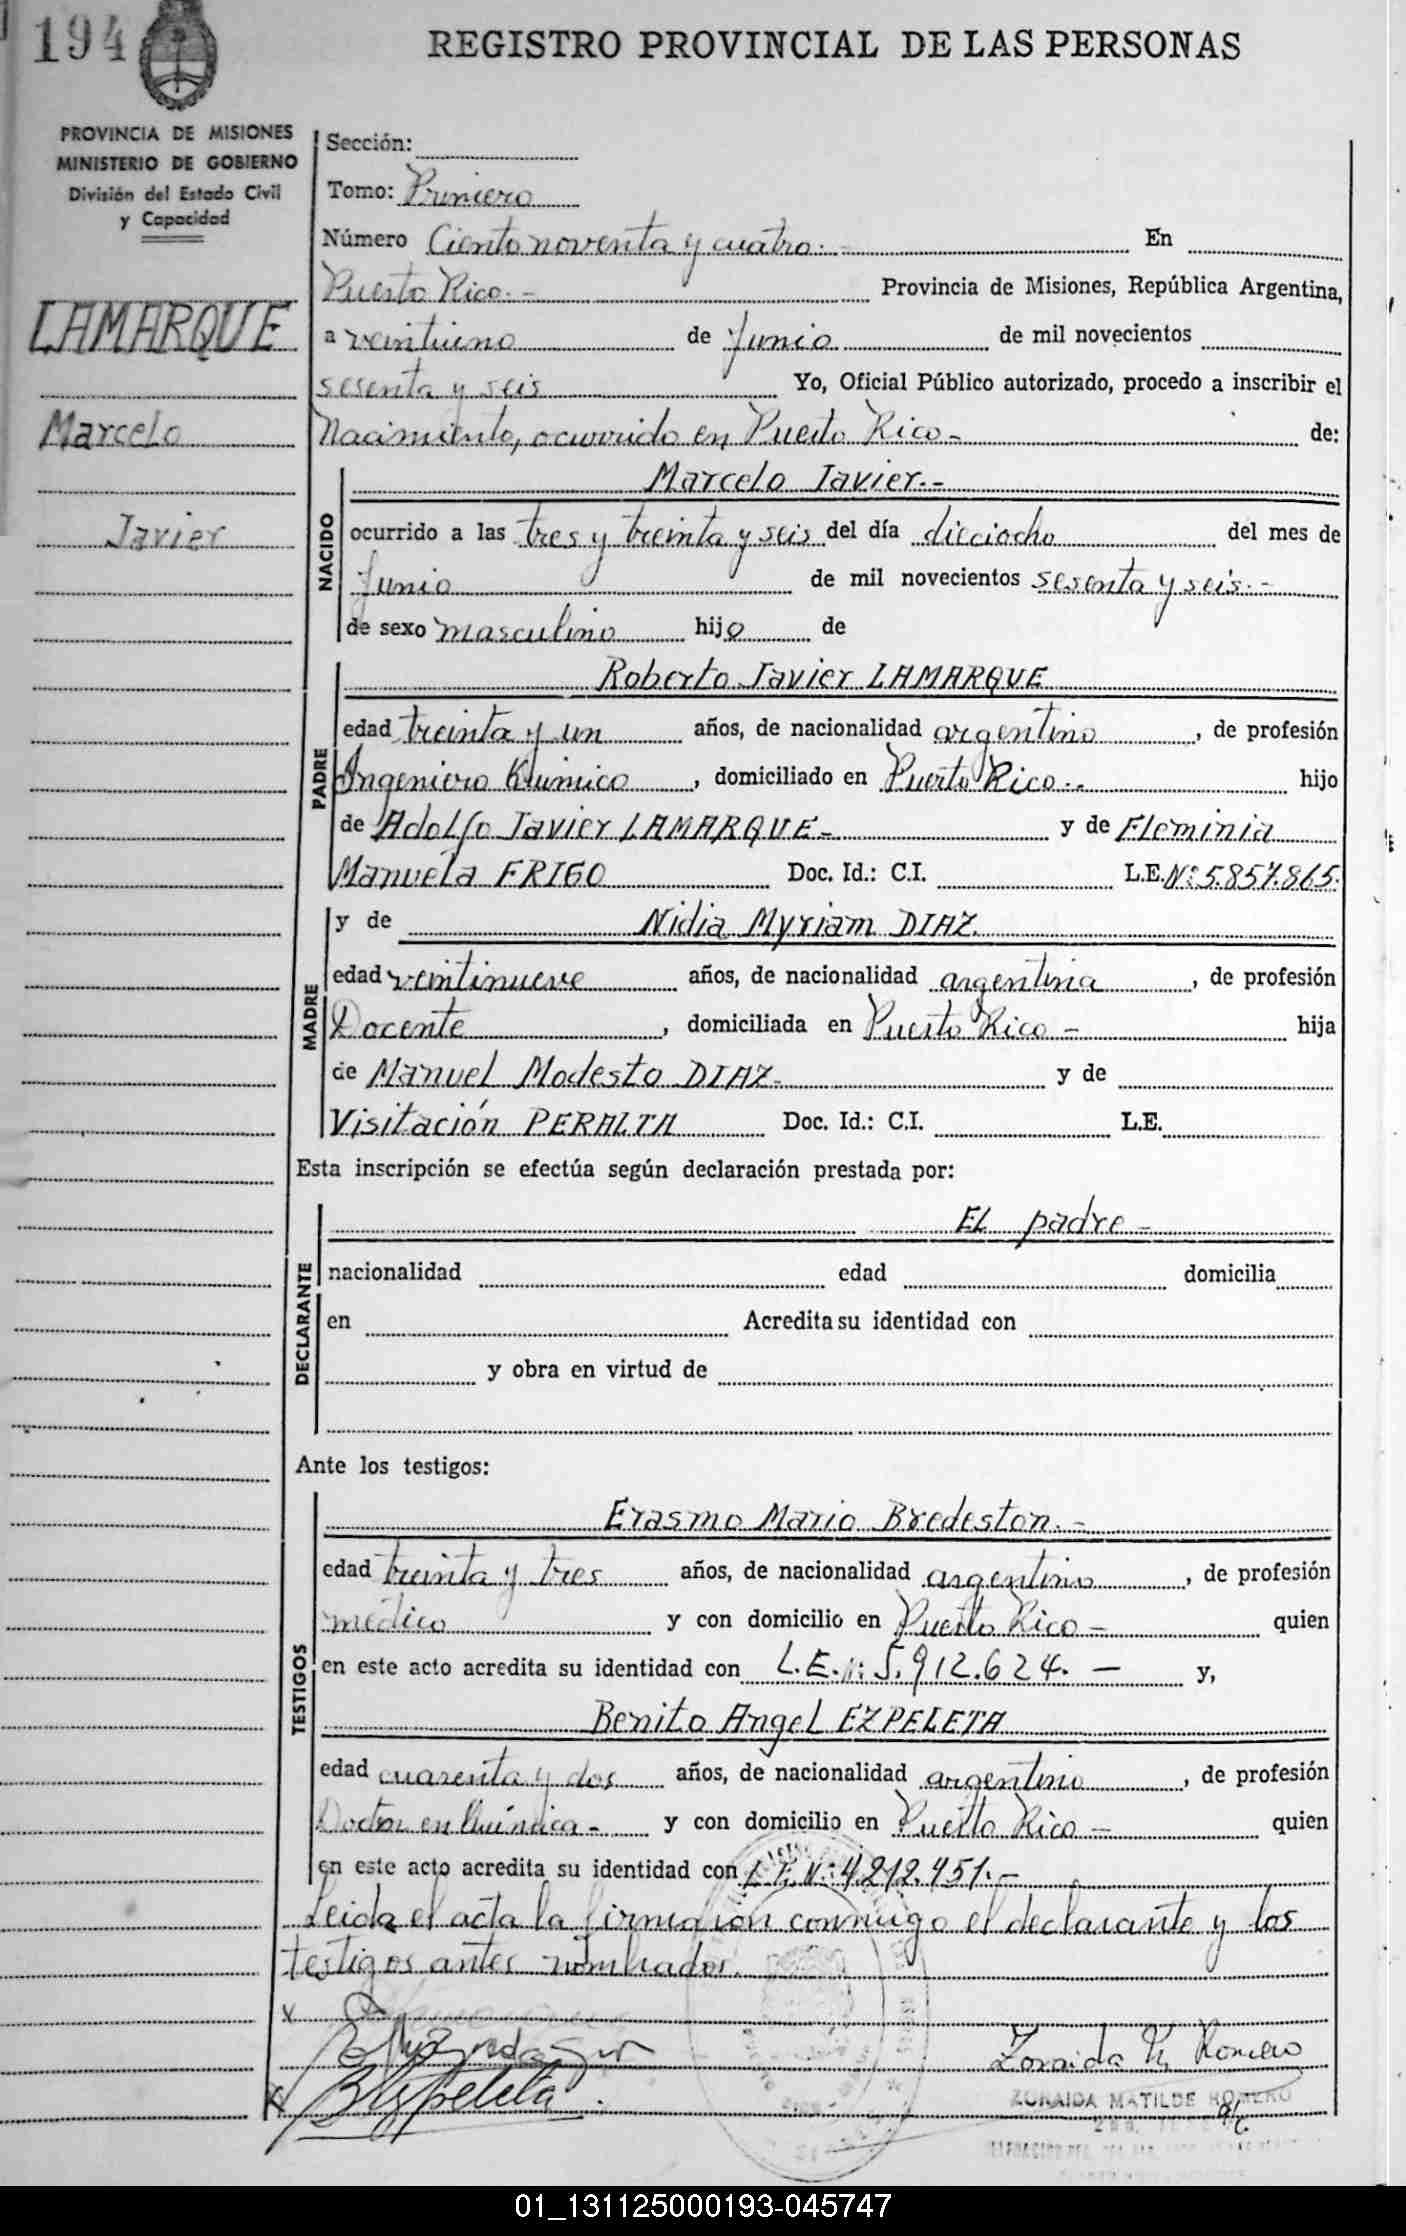 194
REGISTRO PROVINCIAL DE LAS PERSONAS
PROVINCIA DE MISIONES
MINISTERIO DE GOBIERNO
División del Estado Civil
y Capacidad
LAMARQUE
Marcelo
Javier
Sección:
Tomo: Primero
Número Ciento noventa y cuatro.- En
Puerto Rico.- Provincia de Misiones, República Argentina,
a veintiuno de Junio de mil novecientos
sesenta y seis Yo, Oficial Público autorizado, procedo a inscribir el
Nacimiento, ocurrido en Puerto Rico- de:
NACIDO
Marcelo Javier.-
ocurrido a las tres y treinta y seis del día dieciocho del mes de
Junio de mil novecientos sesenta y seis.-
de sexo masculino hijo de
PADRE
Roberto Javier LAMARQUE
edad treinta y un años, de nacionalidad argentino, de profesión
Ingeniero Químico, domiciliado en Puerto Rico.- hijo
de Adolfo Javier LAMARQUE- y de Fleminia
Manuela FRIGO Doc. Id.: C.I. L.E. Nº 5.857.865.
MADRE
y de Nidia Myriam DIAZ.
edad veintinueve años, de nacionalidad argentina, de profesión
Docente, domiciliada en Puerto Rico- hija
de Manuel Modesto DIAZ- y de
Visitación PERALTA Doc. Id.: C.I. L.E.
Esta inscripción se efectúa según declaración prestada por:
DECLARANTE
EL padre-
nacionalidad edad domicilia
en Acredita su identidad con
y obra en virtud de
Ante los testigos:
TESTIGOS
Erasmo Mario Bredeston.-
edad treinta y tres años, de nacionalidad argentino, de profesión
médico y con domicilio en Puerto Rico- quien
en este acto acredita su identidad con L.E.N: 5.912.624.- y,
Benito Angel EZPELETA
edad cuarenta y dos años, de nacionalidad argentino, de profesión
Doctor en Química- y con domicilio en Puerto Rico- quien
en este acto acredita su identidad con L.E. N: 4.212.451.-
Leida el acta la firmaron conmigo el declarante y los
testigos antes nombrados.
Zoraida M. Romero
ZORAIDA MATILDE ROMERO
01_131125000193-045747